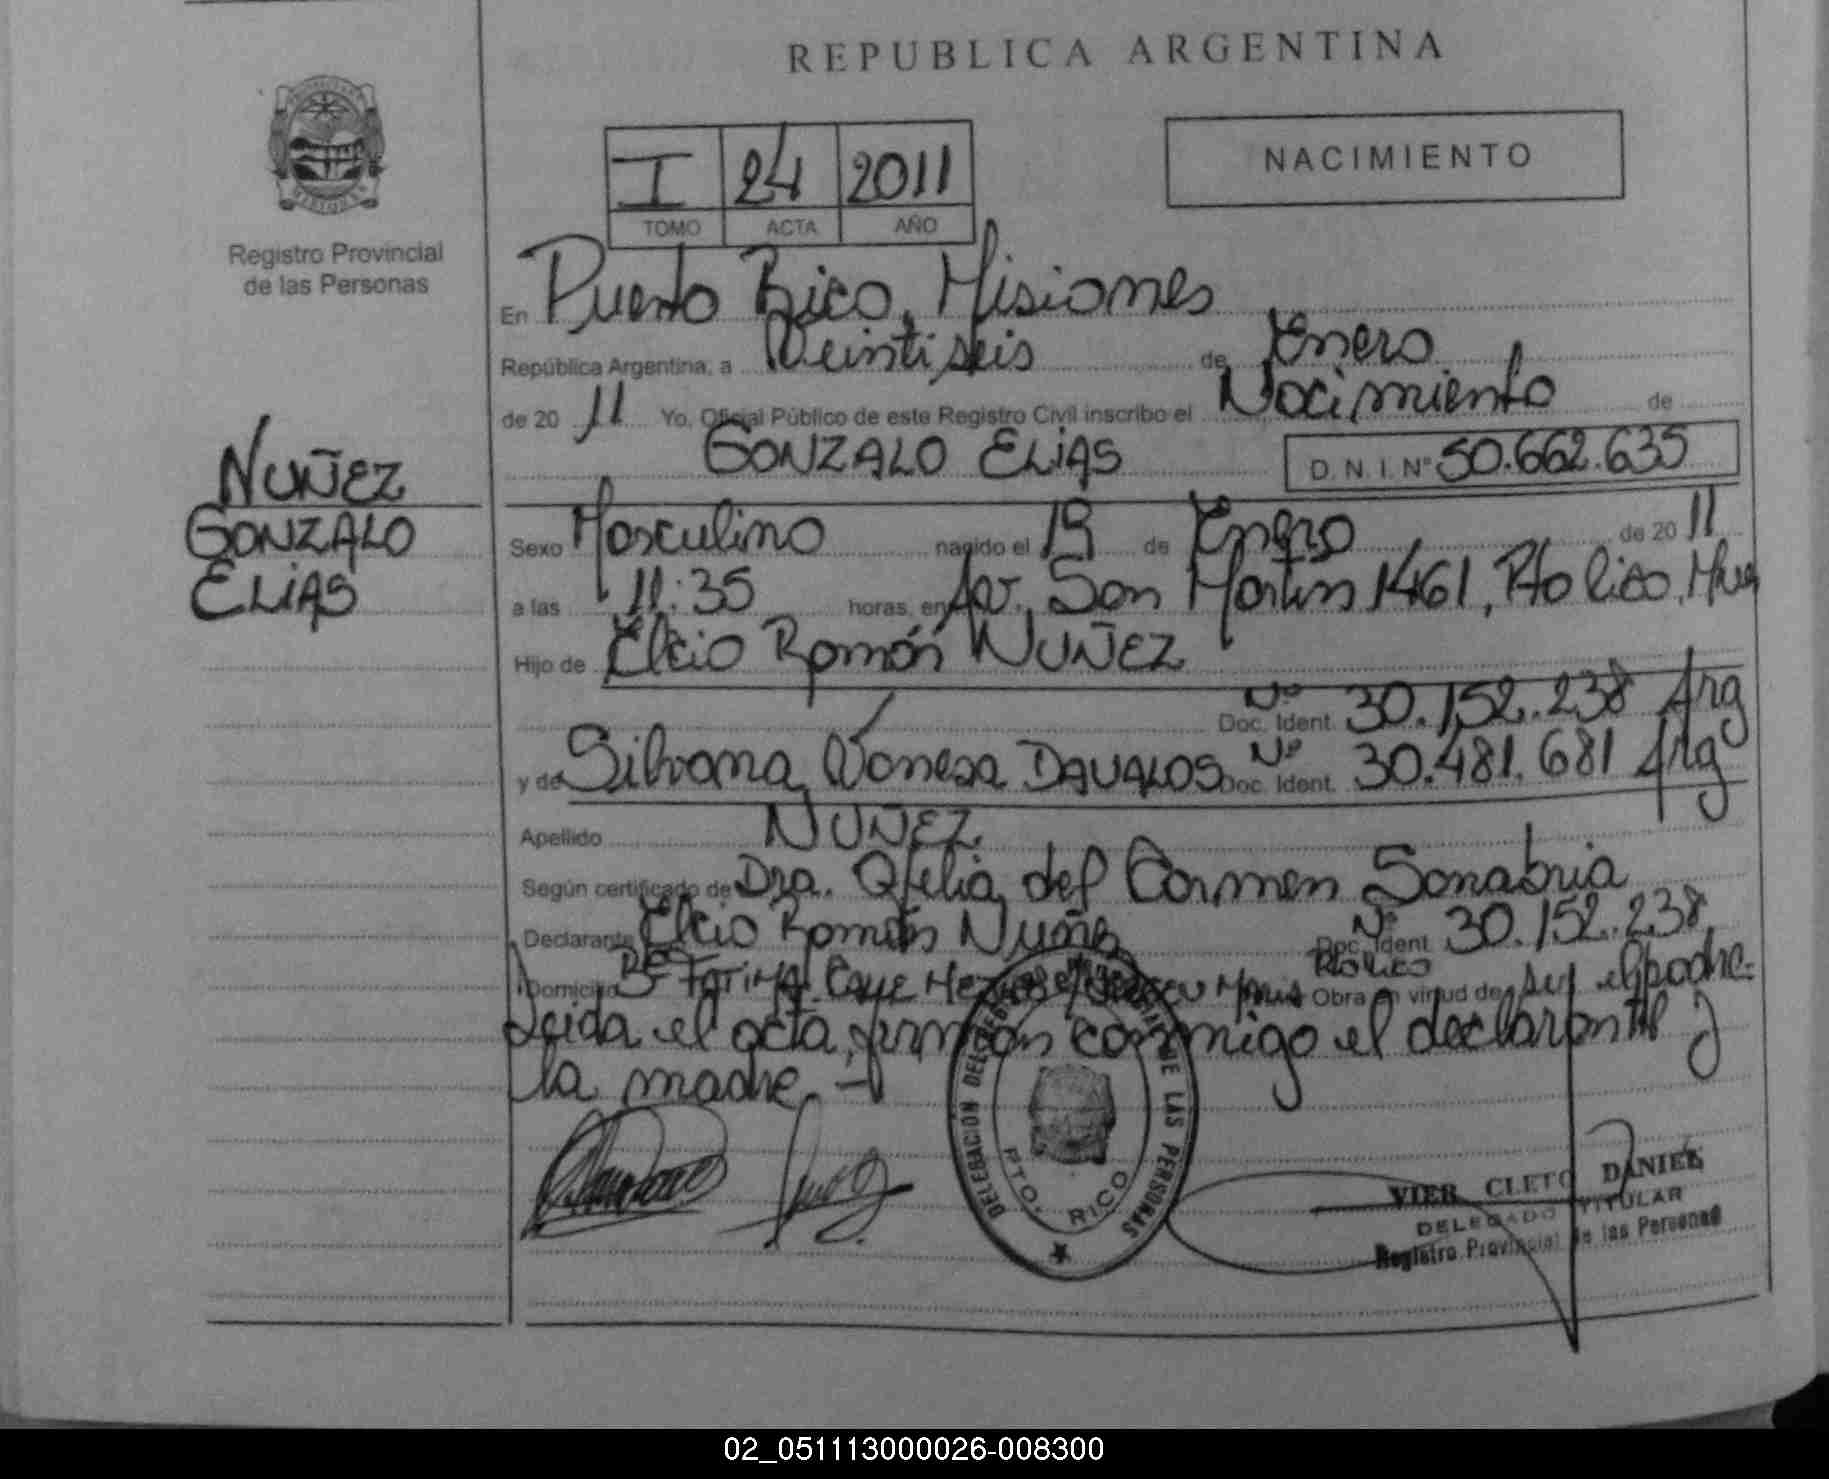 REPUBLICA ARGENTINA
Registro Provincial
de las Personas
I 24 2011
TOMO ACTA AÑO
NACIMIENTO
En Puerto Rico, Misiones
República Argentina, a Veintiseis de Enero
de 20 11 Yo, Oficial Público de este Registro Civil inscribo el Nacimiento de
GONZALO ELIAS D.N.I. Nº 50.662.635
NUÑEZ
GONZALO
ELIAS
Sexo Masculino nacido el 19 de Enero de 20 11
a las 11:35 horas, en Av. San Martin 1461, Pto Rico, Mnes
Hijo de Elcio Ramón NUÑEZ
Nº Doc. Ident. 30.152.238 Arg
y de Silvana Vanesa DAVALOS Nº Doc. Ident. 30.481.681 Arg
Apellido NUÑEZ
Según certificado de Dra. Ofelia del Carmen Sanabria
Declarante Elcio Ramón Nuñez Nº Doc. Ident. 30.152.238
Domicilio Bº FATIMA CALLE Pto Rico Obra en virtud de ser el padre.-
Leida el acta, firman conmigo el declarante y
la madre.-
DELEGACION DEL REGISTRO PROVINCIAL DE LAS PERSONAS
PTO. RICO
VIER CLETO DANIEL
DELEGADO TITULAR
Registro Provincial de las Personas
02_051113000026-008300